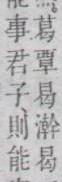 葛覃曷澣曷
事君子則能